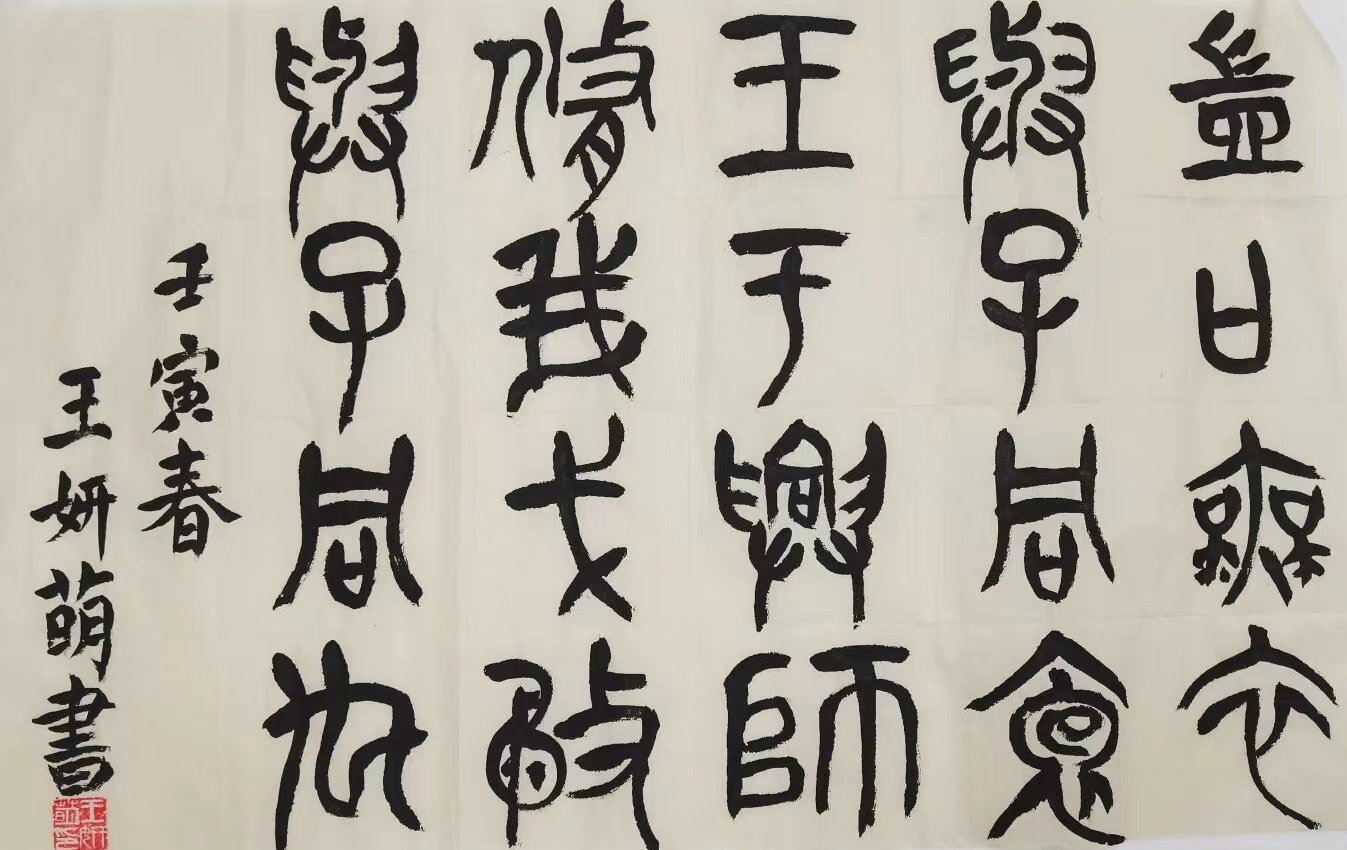 豈曰無衣
與子同袍
王于興師
脩我戈矛
與子同仇
壬寅春
王妍萌書
王妍萌印